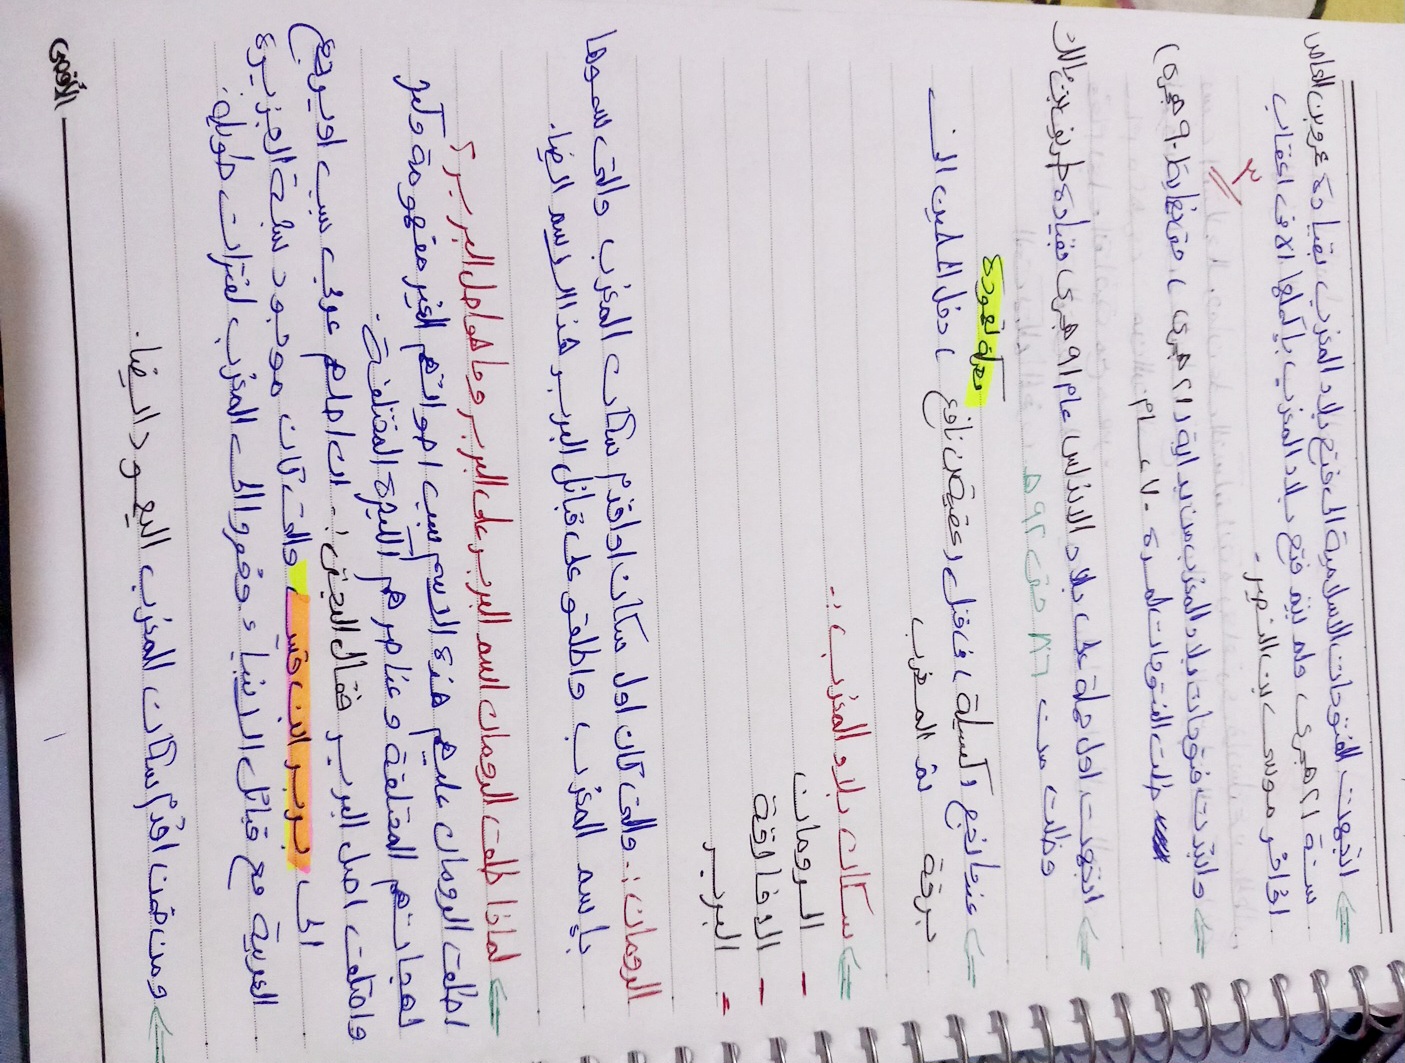 اتجهت الفتوحات الاسلامية الى فتح بلاد المغرب بقيادة عمرو بن العاص
سنة ٢١ هجرى ولم يتم فتح بلاد المغرب بإكملها الا فى اعقاب
موسى بن النصير.
٣
وابتدت فتوحات بلاد المغرب من بداية (٢١ هجرى) حتى نهاية ٩٠ هجرة)
ظلت الفتوحات لمدة ٧٠ عام
اتجهت اول حملة على بلاد الاندلس عام ٩١ هجرى بقيادة طريف بن مالك
وظلت من ٨٦ حتى ٩٢ هـ
معركة تهودة
عندما نجح (كسيلة) فى قتل (عقبة بن نافع) دخل المسلمين الى
برقة ثم المغرب
سكان بلاد المغرب :-
- الرومان
- الافارقة
- البربر
الرومان :- والتى كان اول سكان او اقدم سكان المغرب والتى سموها
بإسم المغرب واطلقو على قبائل البربر هذا الاسم ايضا.
لماذا طلقت الرومان اسم البربر على البربر وما هو اصل البربر ؟
اطلقت الرومان عليهم هذه الاسم بسبب اصواتهم الغير مفهومة وكثر
لهجاتهم المختلفة وعناصرهم الكثيرة المختلفة.
واختلفت اصل البربر فقال البعض :- ان اصلهم عربى بسبب او يرجع
الى بربر ابن قيس والتى كان موجود شبة الجزيرة
العربية مع قبائل الانبياء وفروا الى المغرب لفترات طويلة.
ومن ضمن اقدم سكان المغرب اليهود ايضا.
الأقصى
١